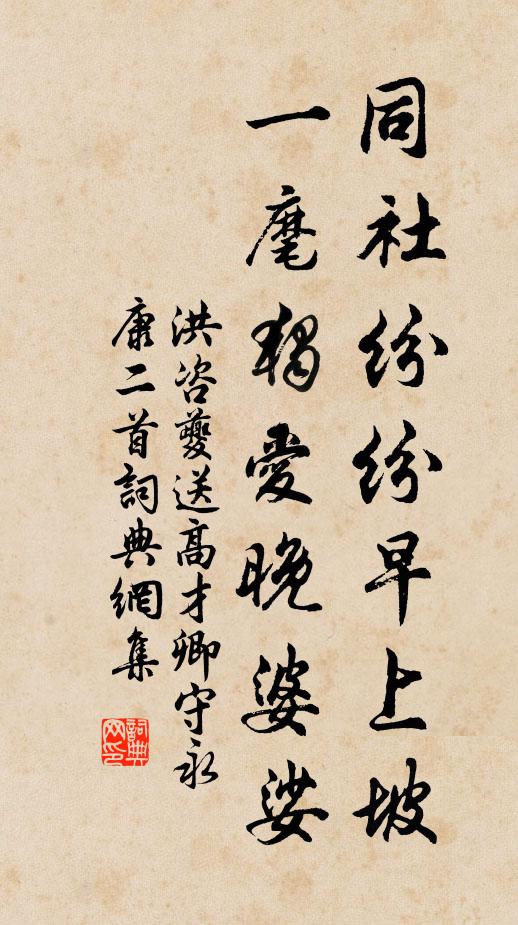 同社紛紛早上坡
一麾獨愛晚婆娑
洪咨夔送高才卿守永
康二首詞典網集
詞典
网印